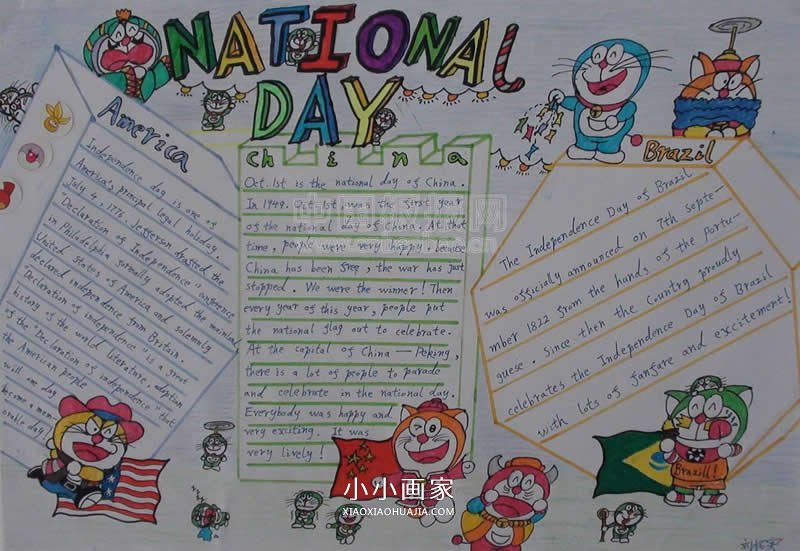 NATIONAL
DAY
America
Independence day is one of
America's principal legal holiday.
July 4, 1776. Jefferson drafted the
Declaration of Independence "conference
in Philadelphia formally adopted the mainland
United States of America and solemnly
declared independence from Britain.
"Declaration of independence" is a great
history of the world literature, adoption
of the "Declaration of independence" that
the American people
will one day
become a mem-
orable day.
China
Oct. 1st is the national day of China.
In 1949. Oct. 1st was the first year
of the national day of China. At that
time, people were very happy. because
China has been free, the war has just
stopped. We were the winner! Then
every year of this year, people put
the national flag out to celebrate.
At the capital of China — Peking,
there is a lot of people to parade
and celebrate in the national day.
Everybody was happy and
very exciting. It was
very lively!
Brazil
The Independence Day of Brazil
was officially announced on 7th septe-
mber 1822 from the hands of the Portu-
guese. Since then the Country proudly
celebrates the Independence Day of Brazil
with lots of fanfare and excitement!
Brazil!
小小画家
XIAOXIAOHUAJIA.COM